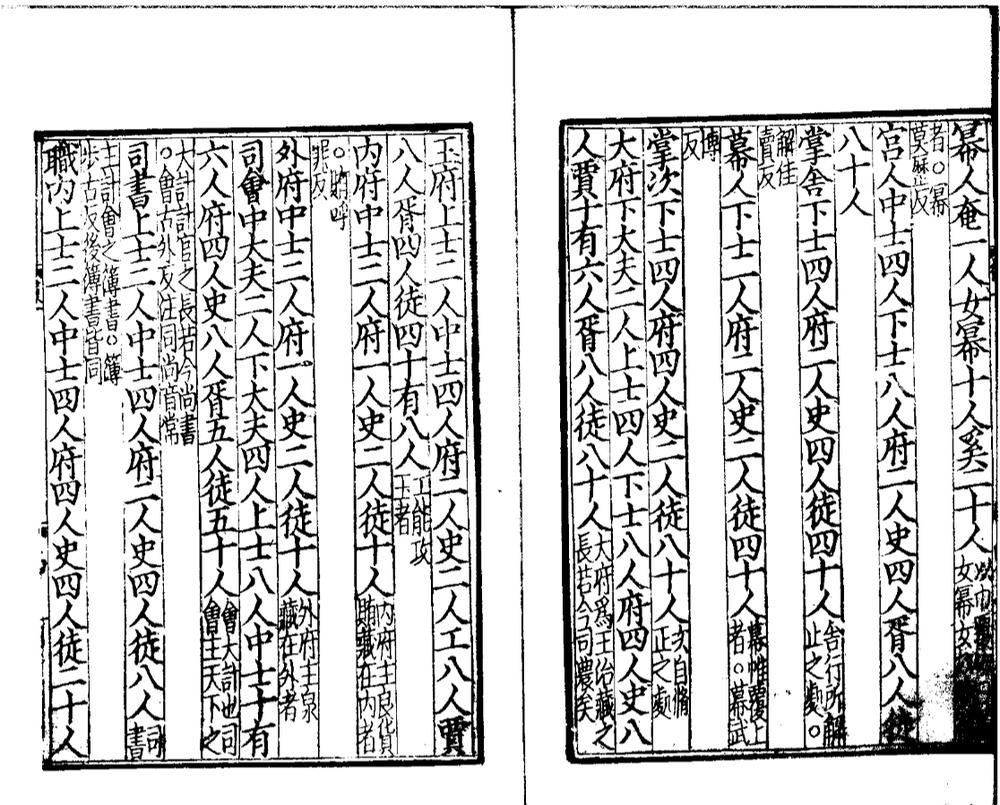 冪人奄一人女冪十人奚二十人以巾覆物曰冪女冪女奴曉冪
者○冪莫歷反
宮人中士四人下士八人府二人史四人胥八人徒
八十人
掌舍下士四人府二人史四人徒四十人舍行所解止之處○
解佳賣反
幕人下士一人府二人史二人徒四十人幕帷覆上者○幕武
博反
掌次下士四人府四人史二人徒八十人次自脩止之處
大府下大夫二人上士四人下士八人府四人史八
人賈十有六人胥八人徒八十人大府爲王治藏之長若今司農矣
玉府上士二人中士四人府二人史二人工八人賈
八人胥四人徒四十有八人工能攻玉者
內府中士二人府一人史二人徒十人內府主良貨賄藏在內者
○賄呼罪反
外府中士二人府一人史二人徒十人外府主泉藏在外者
司會中大夫二人下大夫四人上士八人中士十有
六人府四人史八人胥五人徒五十人會大計也司會主天下之
大計計官之長若今尚書○會古外反注同尚音常
司書上士二人中士四人府二人史四人徒八人司書
主計會之簿書○簿步古反後簿書皆同
職內上士二人中士四人府四人史四人徒二十人